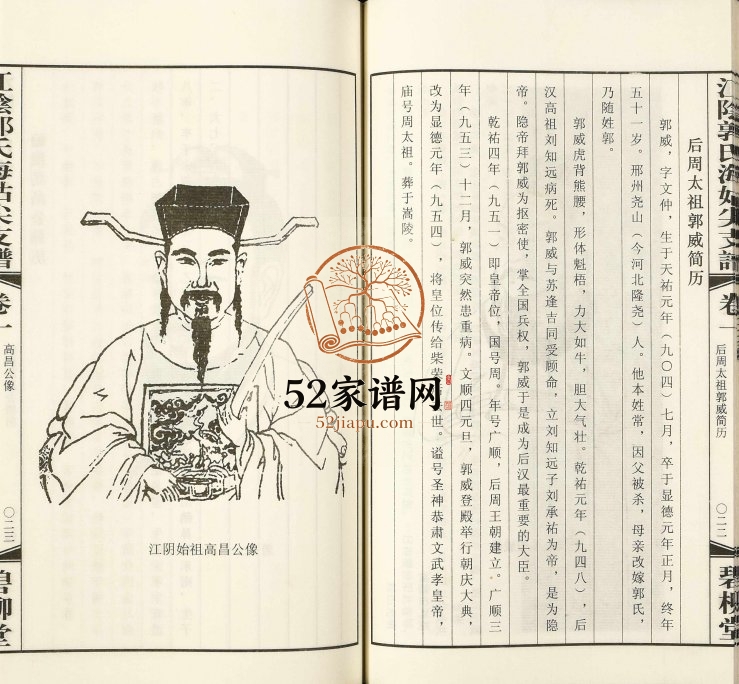 江陰郭氏海姑尖支譜
卷一
后周太祖郭威简历
〇二二
碧柳堂
后周太祖郭威简历
郭威，字文仲，生于天祐元年（九〇四）七月，卒于显德元年正月，终年
五十一岁。邢州尧山（今河北隆尧）人。他本姓常，因父被杀，母亲改嫁郭氏，
乃随姓郭。
郭威虎背熊腰，形体魁梧，力大如牛，胆大气壮。乾祐元年（九四八），后
汉高祖刘知远病死。郭威与苏逢吉同受顾命，立刘知远子刘承祐为帝，是为隐
帝。隐帝拜郭威为抠密使，掌全国兵权，郭威于是成为后汉最重要的大臣。
乾祐四年（九五一）即皇帝位，国号周。年号广顺，后周王朝建立。广顺三
年（九五三）十二月，郭威突然患重病。文顺四元旦，郭威登殿举行朝庆大典，
改为显德元年（九五四），将皇位传给柴荣世。谥号圣神恭肃文武孝皇帝，
庙号周太祖。葬于嵩陵。
52家谱网
52jiapu.com
江阴始祖高昌公像
江陰郭氏海姑尖支譜
卷一
高昌公像
〇二三
碧柳堂